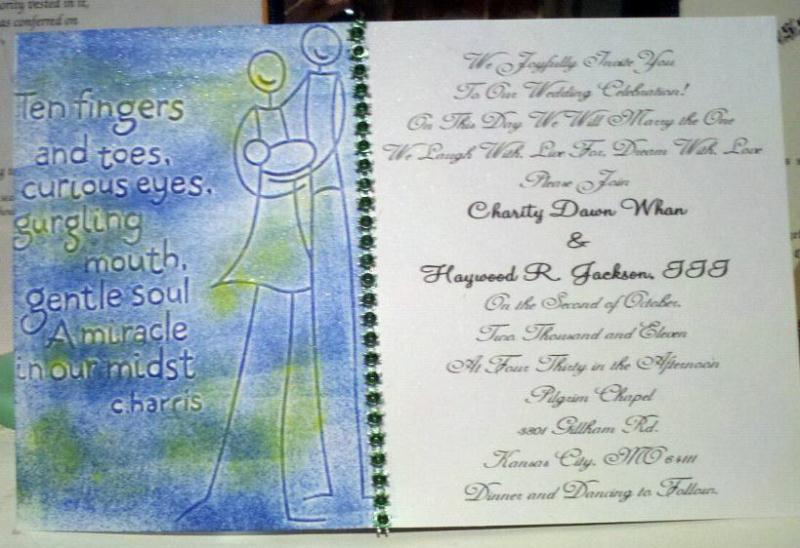 ority vested in it,
as conferred on
Ten fingers
and toes,
curious eyes,
gurgling
mouth,
gentle soul
A miracle
in our midst
c.harris
We Joyfully Invite You
To Our Wedding Celebration!
On This Day We Will Marry the One
We Laugh With, Live For, Dream With, Love
Please Join
Charity Dawn Whan
&
Haywood R. Jackson, III
On the Second of October,
Two Thousand and Eleven
At Four Thirty in the Afternoon
Pilgrim Chapel
3801 Gillham Rd.
Kansas City, MO 64111
Dinner and Dancing to Follow.